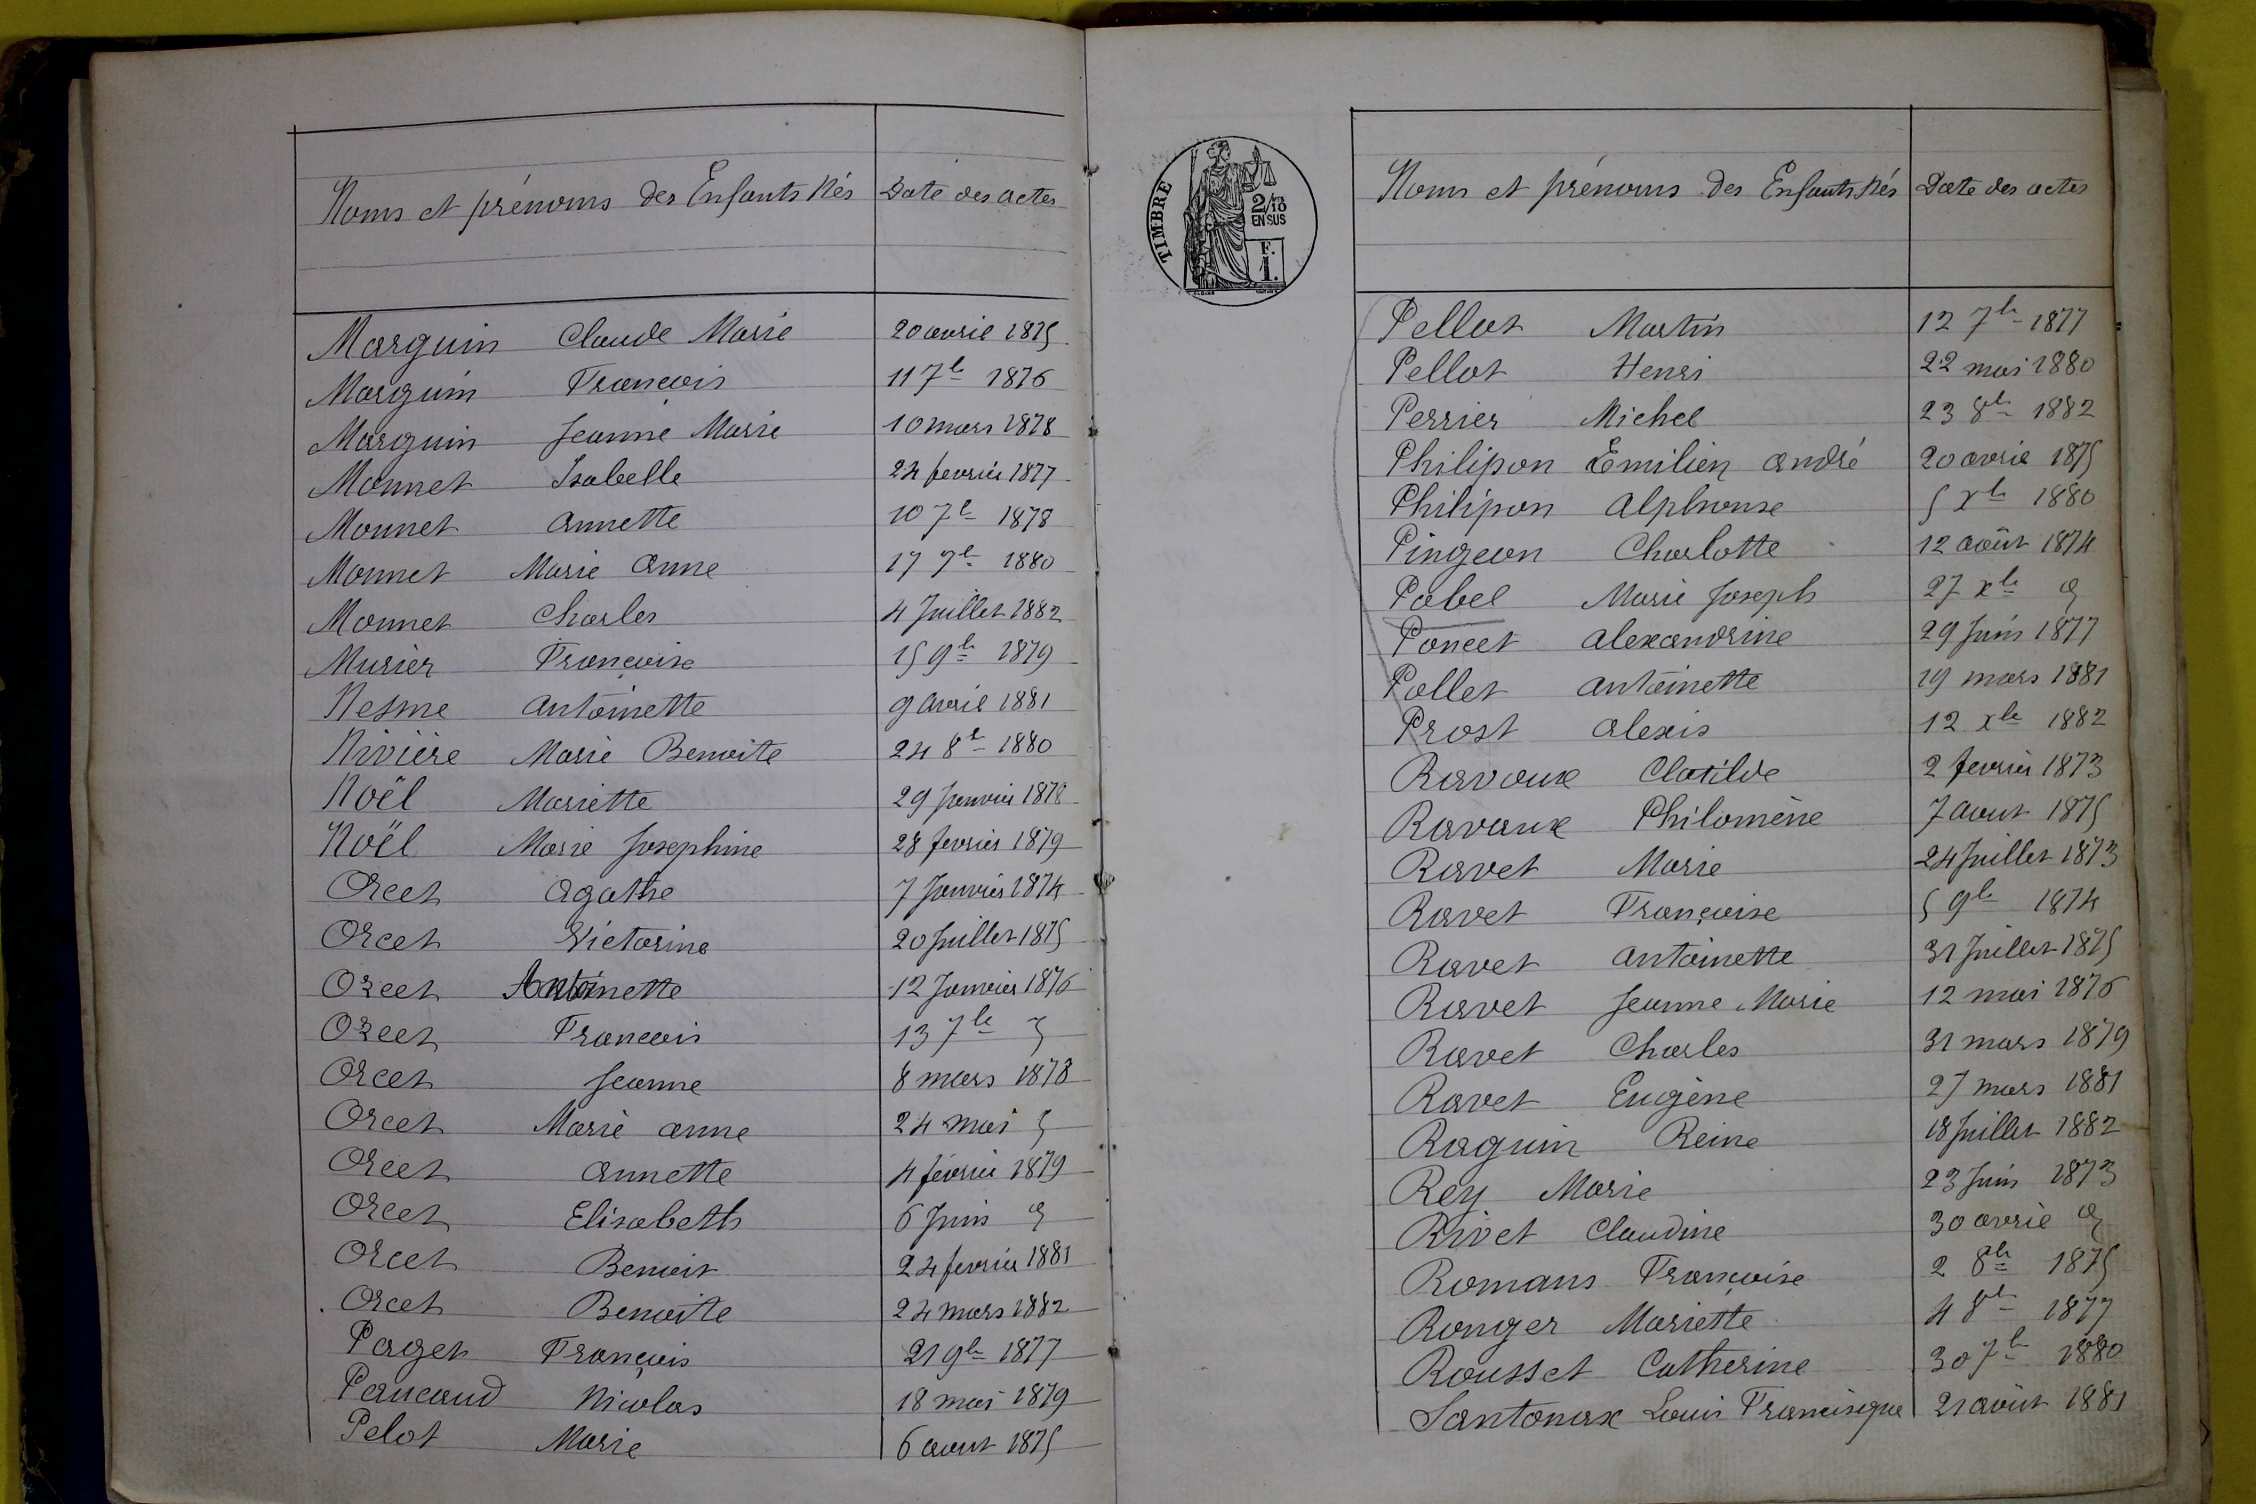 Noms et prénoms des Enfants Nés Date des actes
Marguin Claude Marie 20 avril 1875
Marguin François 11 7b 1876
Marguin Jeanne Marie 10 mars 1878
Monnet Isabelle 24 fevrier 1877
Monnet annette 10 7b 1878
Monnet Marie anne 17 7b 1880
Monnet Charles 4 Juillet 1882
Murier Françoise 15 9b 1879
Nesme antoinette 9 avril 1881
Nivière Marie Benoite 24 8b 1880
Noël Mariette 29 Janvier 1878
Noël Marie Josephine 28 fevrier 1879
Orcet agathe 7 Janvier 1874
Orcet Victorine 20 Juillet 1875
Orcet Antoinette 12 Janvier 1876
Orcet François 13 7be
Orcet Jeanne 8 mars 1878
Orcet Marie anne 24 mai
Orcet annette 4 février 1879
Orcet Elisabeth 6 Juin
Orcet Benoit 24 fevrier 1881
Orcet Benoite 24 mars 1882
Paget François 21 9be 1877
Paucaud Nicolas 18 mai 1879
Pelot Marie 6 aout 1875
TIMBRE
2/10
EN SUS
F.
1.
Noms et prénoms des Enfants Nés Date des actes
Pellot Martin 12 7be 1877
Pellot Henri 22 mai 1880
Perrier Michel 23 8be 1882
Philipon Emilien andré 20 avril 1875
Philipon Alphonse 5 xbe 1880
Pingeon Charlotte 12 août 1874
Pobel Marie Joseph 27 xbe
Poncet alexandrine 29 Juin 1877
Pollet antoinette 19 mars 1881
Prost alexis 12 xbe 1882
Ravoux Clotilde 2 fevrier 1873
Ravoux Philomène 7 aout 1875
Ravet Marie 24 Juillet 1873
Ravet Françoise 5 9be 1874
Ravet antoinette 31 Juillet 1875
Ravet Jeanne Marie 12 mai 1876
Ravet Charles 31 mars 1879
Ravet Eugène 27 mars 1881
Raguin Reine 18 Juillet 1882
Rey Marie 23 Juin 1873
Rivet Claudine 30 avril
Romans Françoise 2 8be 1875
Ronger Mariette 4 8be 1877
Rousset Catherine 30 7be 1880
Santonax Louis Francisque 21 août 1881